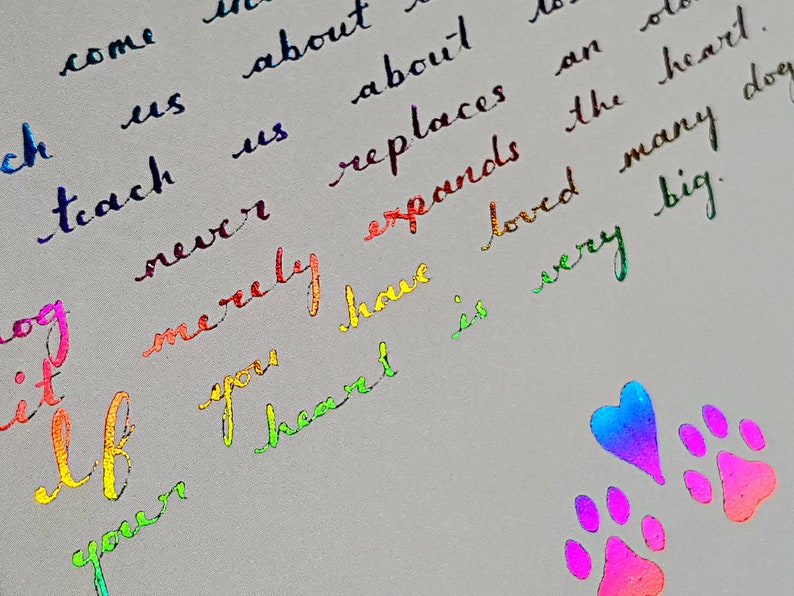 come
us about
teach us about
never replaces an
it merely expands the heart.
If you have loved many dog
your heart is very big.